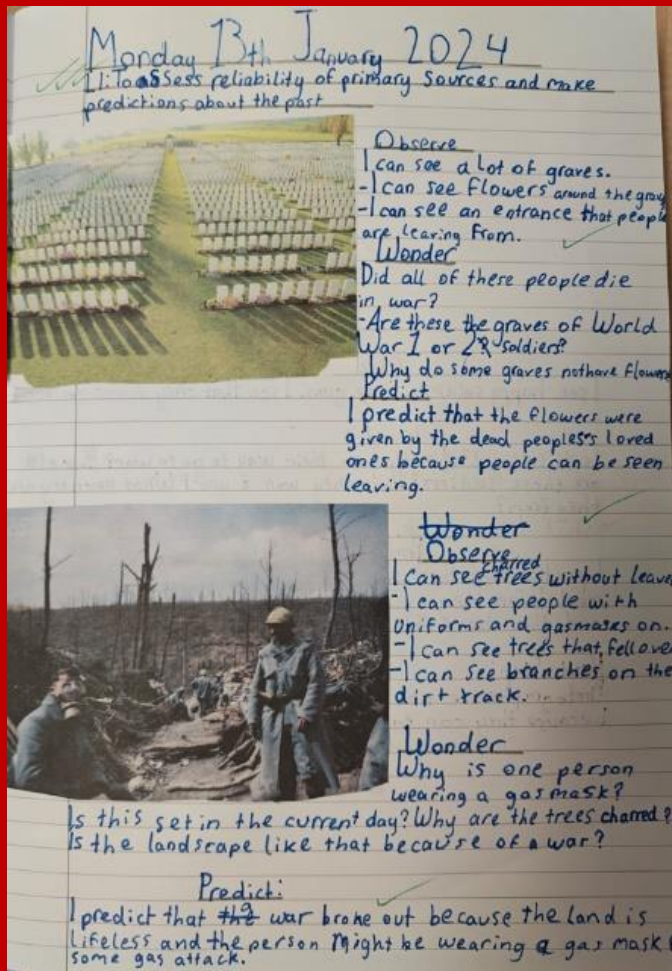 Monday 13th January 2024
LI: To assess reliability of primary sources and make
predictions about the past
Observe
I can see a lot of graves.
-I can see flowers around the grav
-I can see an entrance that people
are leaving from.
Wonder
Did all of these people die
in war?
-Are these the graves of World
War 1 or 2 soldiers?
Why do some graves not have flowers
Predict
I predict that the flowers were
given by the dead peoples's loved
ones because people can be seen
leaving.
Wonder
Observe
I can see charred trees without leave
-I can see people with
uniforms and gasmasks on.
-I can see trees that fell over
-I can see branches on the
dirt track.
Wonder
Why is one person
wearing a gas mask?
Is this set in the current day? Why are the trees charred?
Is the landscape like that because of a war?
Predict:
I predict that the a war broke out because the land is
lifeless and the person might be wearing a gas mask
some gas attack.